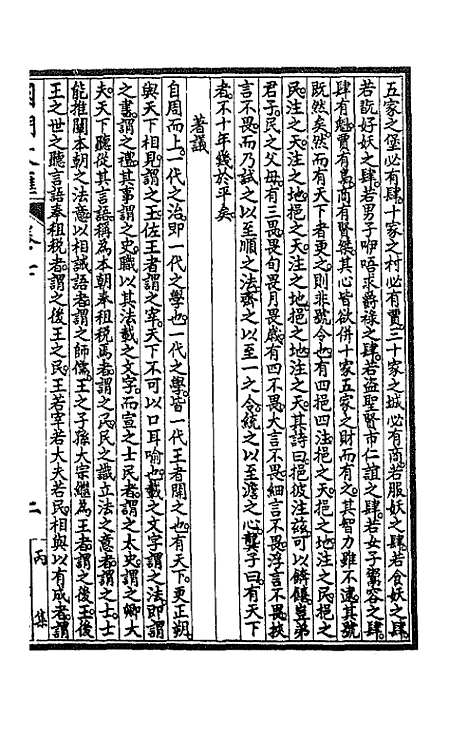 五家之堡必有肆。十家之村必有賈。三十家之城必有商。若服妖之肆。若食妖之肆。
若翫好妖之肆。若男子咿唔求爵祿之肆。若盜聖賢市仁誼之肆。若女子鬻容之肆。
肆有魁。賈有梟。商有賢桀。其心皆欲併十家五家之財而有之。其智力雖不逮。其號
既然矣。然而有天下者更之。則非號令也。有四挹四注。挹之天。挹之地。注之民。挹之
民。注之天。注之地。挹之天。注之地。挹之地。注之天。其詩曰挹彼注茲。可以餴饎。豈弟
君子。民之父母。有三畏。畏旬畏月畏歲。有四不畏。大言不畏。細言不畏。浮言不畏。挾
言不畏。而乃試之以至順之法。齊之以至一之令。統之以至澹之心。龔子曰。有天下
者。不十年幾於平矣。
著議
自周而上。一代之治。即一代之學也。一代之學。皆一代王者開之也。有天下。更正朔。
與天下相見。謂之王。佐王者謂之宰。天下不可以口耳喻也。載之文字。謂之法。即謂
之書。謂之禮。其事謂之史。職以其法載之文字。而宣之士民者。謂之太史。謂之卿大
夫。天下聽從其言語。稱為本朝奉租稅焉者。謂之民。民之識立法之意者。謂之士。士
能推闡本朝之法意。以相誡語者。謂之師儒。王之子孫大宗繼為王者。謂之後王。後
王之世之聽言語奉租稅者。謂之後王之民。王若宰若大夫若民。相與以有成者。謂
國朝文匯 卷七 二 丙集